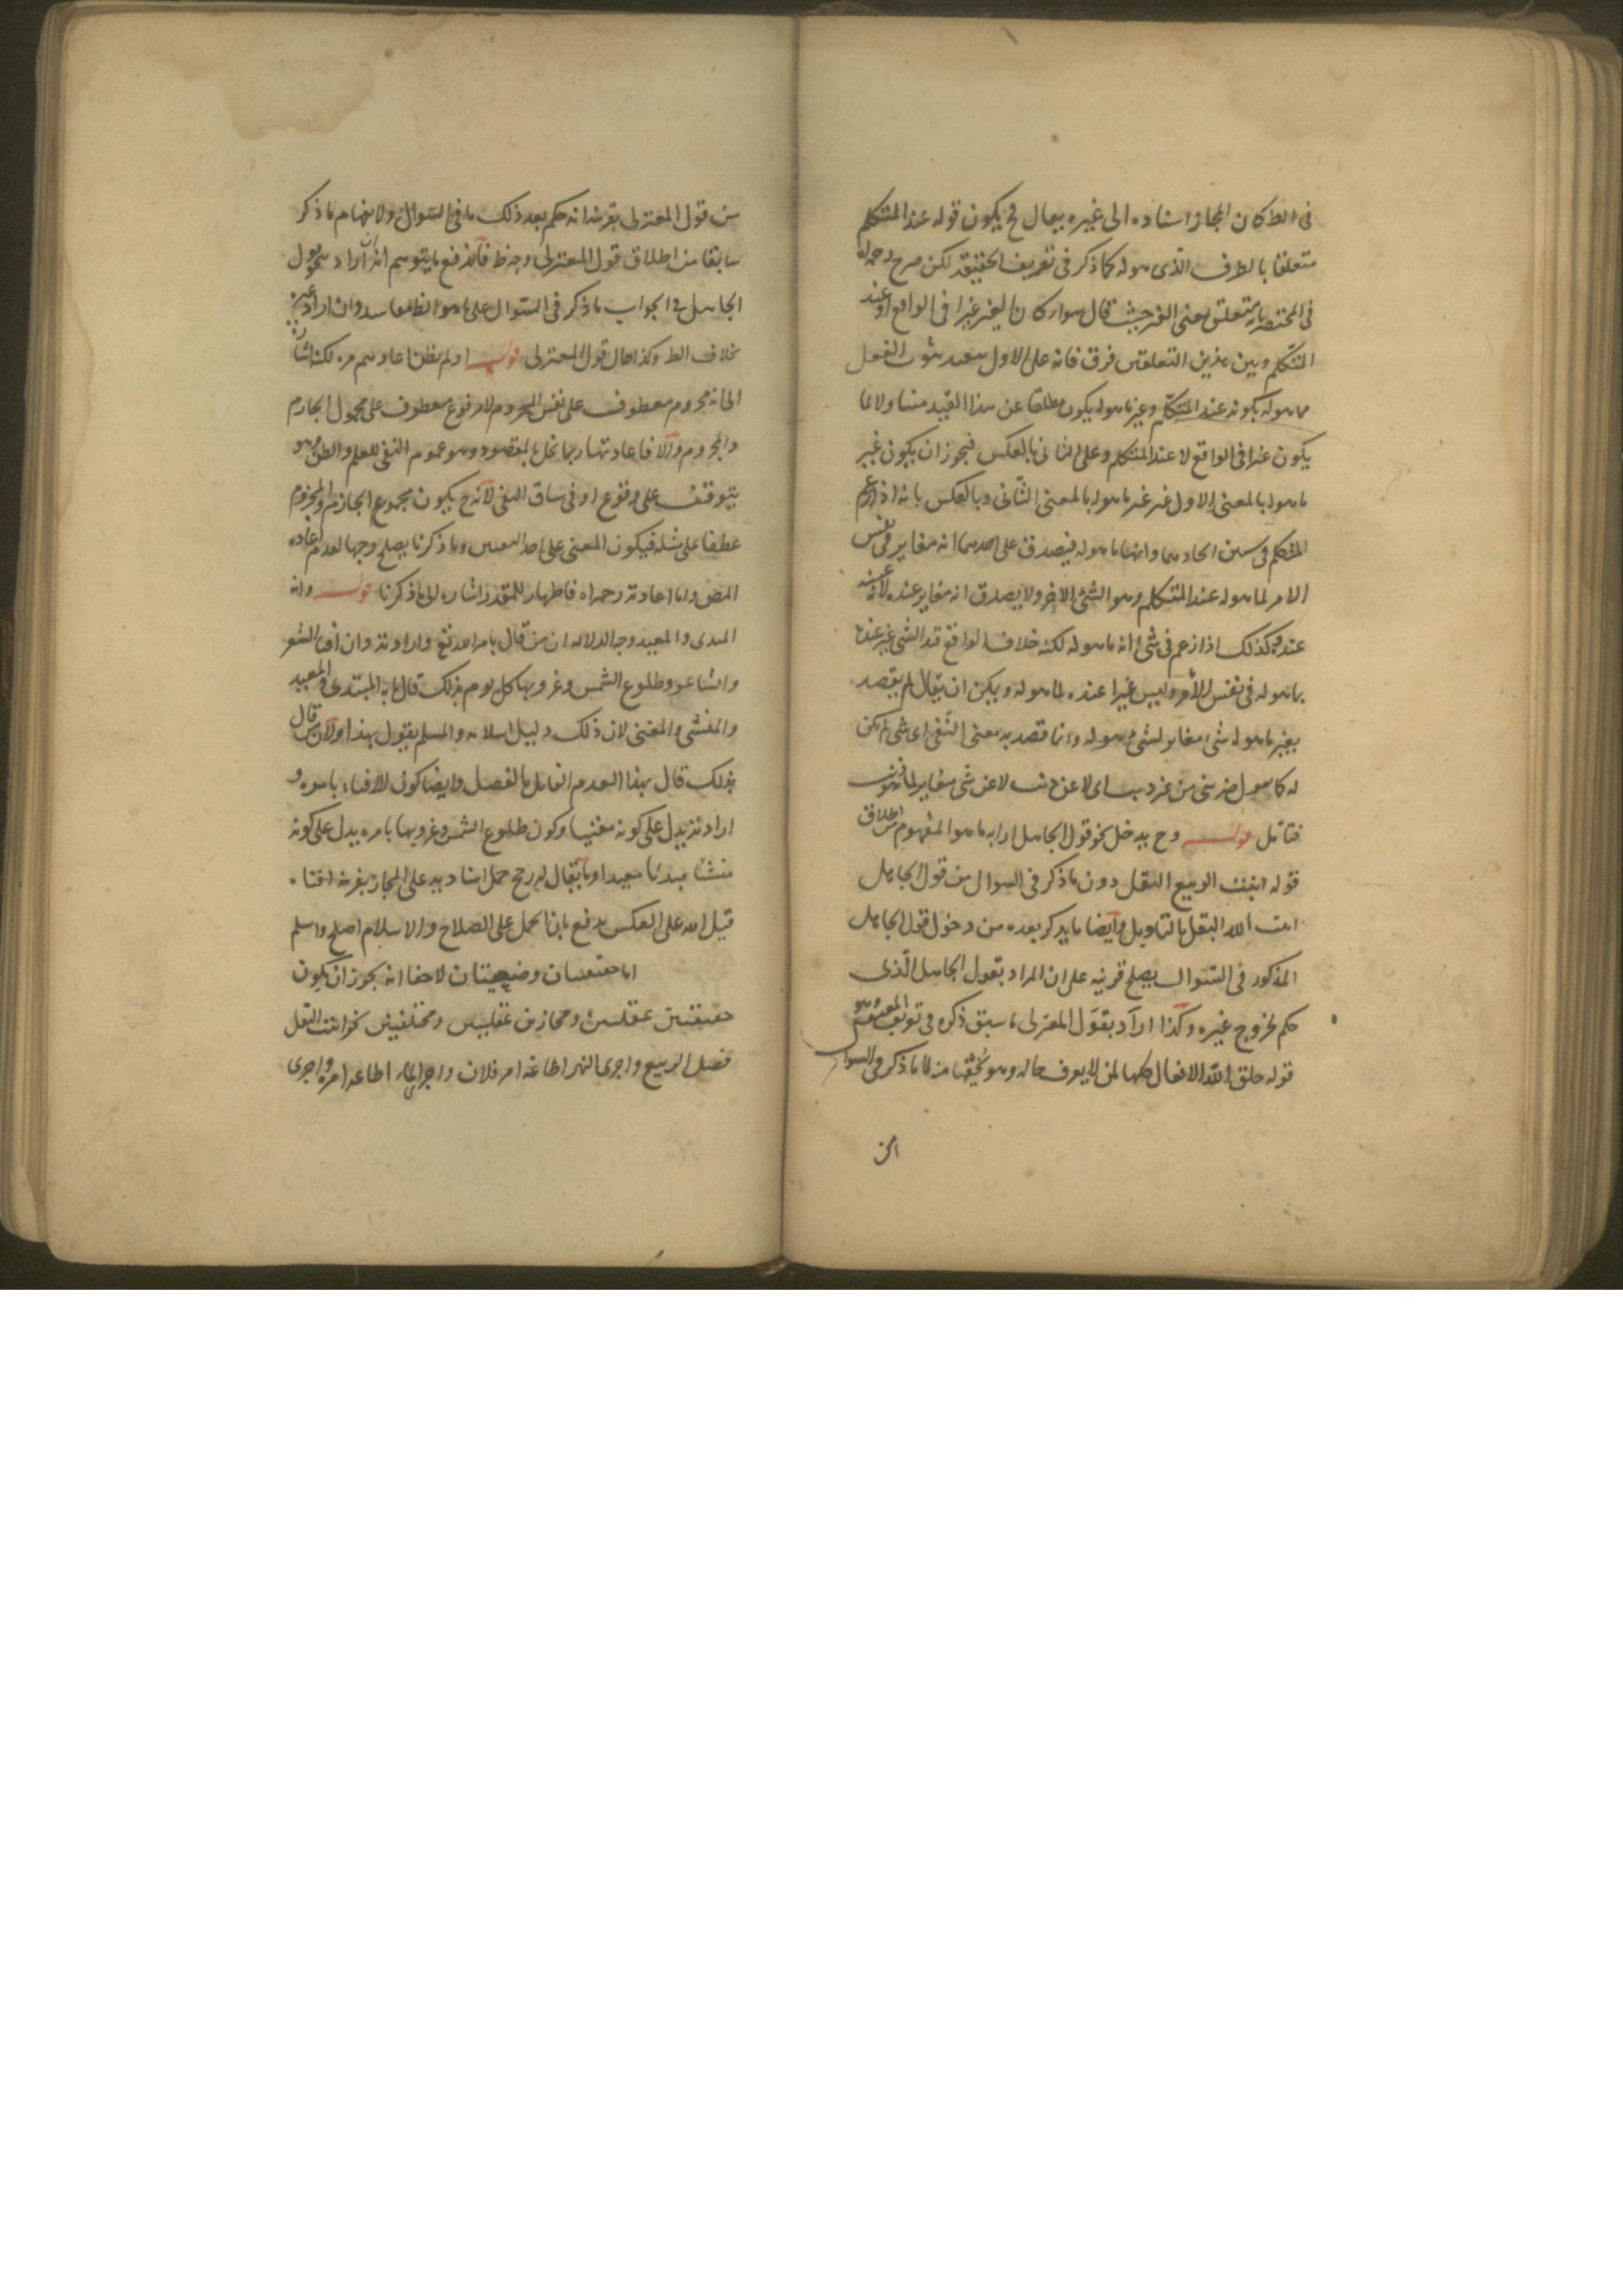 فى الظ كان المجاز اسناده الى غيره يعال فح يكون قوله عند المتكلم
متعلقا بالظرف الذى هو له كما ذكر فى تعريف الحقيقة لكن صرح رحمه الله
فى المختصر بانه متعلق بمعنى الغير حيث قال سواء كان الغير غيرا فى الواقع او عند
المتكلم وبين هذين التعلقين فرق فانه على الاول بثبوت الفعل
مما هو له بكونه عند المتكلم وغير ما هو له يكون مطلقا عن هذا القيد متناولا لما
يكون غيرا فى الواقع لا عند المتكلم وعلى الثانى بالعكس فيجوز ان يكون غير
ما هو له بالمعنى الاول غير غير ما هو له بالمعنى الثانى وبالعكس بانه اذا زعم
المتكلم فى شيئين اتحادهما وانهما ما هو له فيصدق على احدهما انه مغاير فى نفس
الامر لما هو له عند المتكلم وهو الشئ الاخر ولا يصدق انه مغاير عنده لانه عينه
عنده وكذلك اذا زعم فى شئ انه ما هو له لكنه خلاف الواقع الشئ غير عنده
بما هو له فى نفس الأمر وليس غيرا عنده لما هو له ويمكن ان يقال لم يقصد
بغير ما هو له شئ مغاير لشئ هو له وانما قصد به معنى النفى اى شئ لم يكن
له كما هو ضربنى من غير ذنب اى لا عن ذنب لا عن شئ مغاير
فتامل قوله وح يدخل نحو قول الجاهل اراد به ما هو المفهوم من اطلاق
قوله انبت الربيع البقل دون ما ذكر فى السوال من قول الجاهل
انبت الله البقل بالتاويل وايضا ما يذكر بعده من دخول قول الجاهل
المذكور فى السوال يصلح قرينه على ان المراد بقول الجاهل الذى
حكم بخروج غيره وكذا اراد بقول المعتزلى ما سبق ذكره فى تعريف الحقيقة وهو
قوله خلق الله الافعال كلها لمن لا يعرف حاله وهو يخفيها منه لا ما ذكر فى السوال
من قول المعتزلى بقرينة انه حكم بعد ذلك ما فى السوال ولانفهام ما ذكر
سابقا من اطلاق قول المعتزلى وح ظ فاندفع ما يتوهم انه ان اراد بقول
الجاهل فى الجواب ما ذكر فى السوال على ما هو الظ ففاسد وان اراد غيره
خلاف الظ وكذا حال قول المعتزلى قوله او لم يظن اعاد لم مره لكنه اشارة
الى انه مجزوم معطوف على نفس المجزوم لا مرفوع معطوف على مجموع الجازم
والمجزوم والا فاعادتها ربما تخل بالمقصود وهو عموم النفى للعلم والظن وهو
يتوقف على وقوع او فى سياق النفى لانه ح يكون مجموع الجازم والمجزوم
عطفا على مثله فيكون المعنى على احد النفيين وما ذكرنا يصلح وجها لعدم اعاده
المص واما اعادته رحمه الله فاظهار للمقدر اشاره الى ما ذكرنا قوله وانه
المبدى والمعيد وجه الدلاله ان من قال بامر الله تعالى وارادته وان افنى الشعر
والشاعر وطلوع الشمس وغروبها كل يوم بذلك قال بانه المبتدى والمعيد
والمنشى والمفنى لان ذلك دليل اسلامه والمسلم يقول بهذا ولان من قال
بذلك قال بهذا لعدم القائل بالفصل وايضا كون الافناء بامره و
ارادته يدل على كونه مفنيا وكون طلوع الشمس وغروبها بامره يدل على كونه
منشئا مبدئا معيدا وما يقال لم رجح حمل اسناد ميز على المجاز بقرينة افناه
قيل الله على العكس يدفع بان الحمل على الصلاح والاسلام اصلح واسلم
اما حقيقتان وضعيتان لا خفا انه يجوز ان يكون
حقيقتين عقليتين ومجازين عقليين ومختلفين نحو انبت البقل
فصل الربيع واجرى النهر اطاعة امر فلان واجرى الماء اطاعة امره واجرى